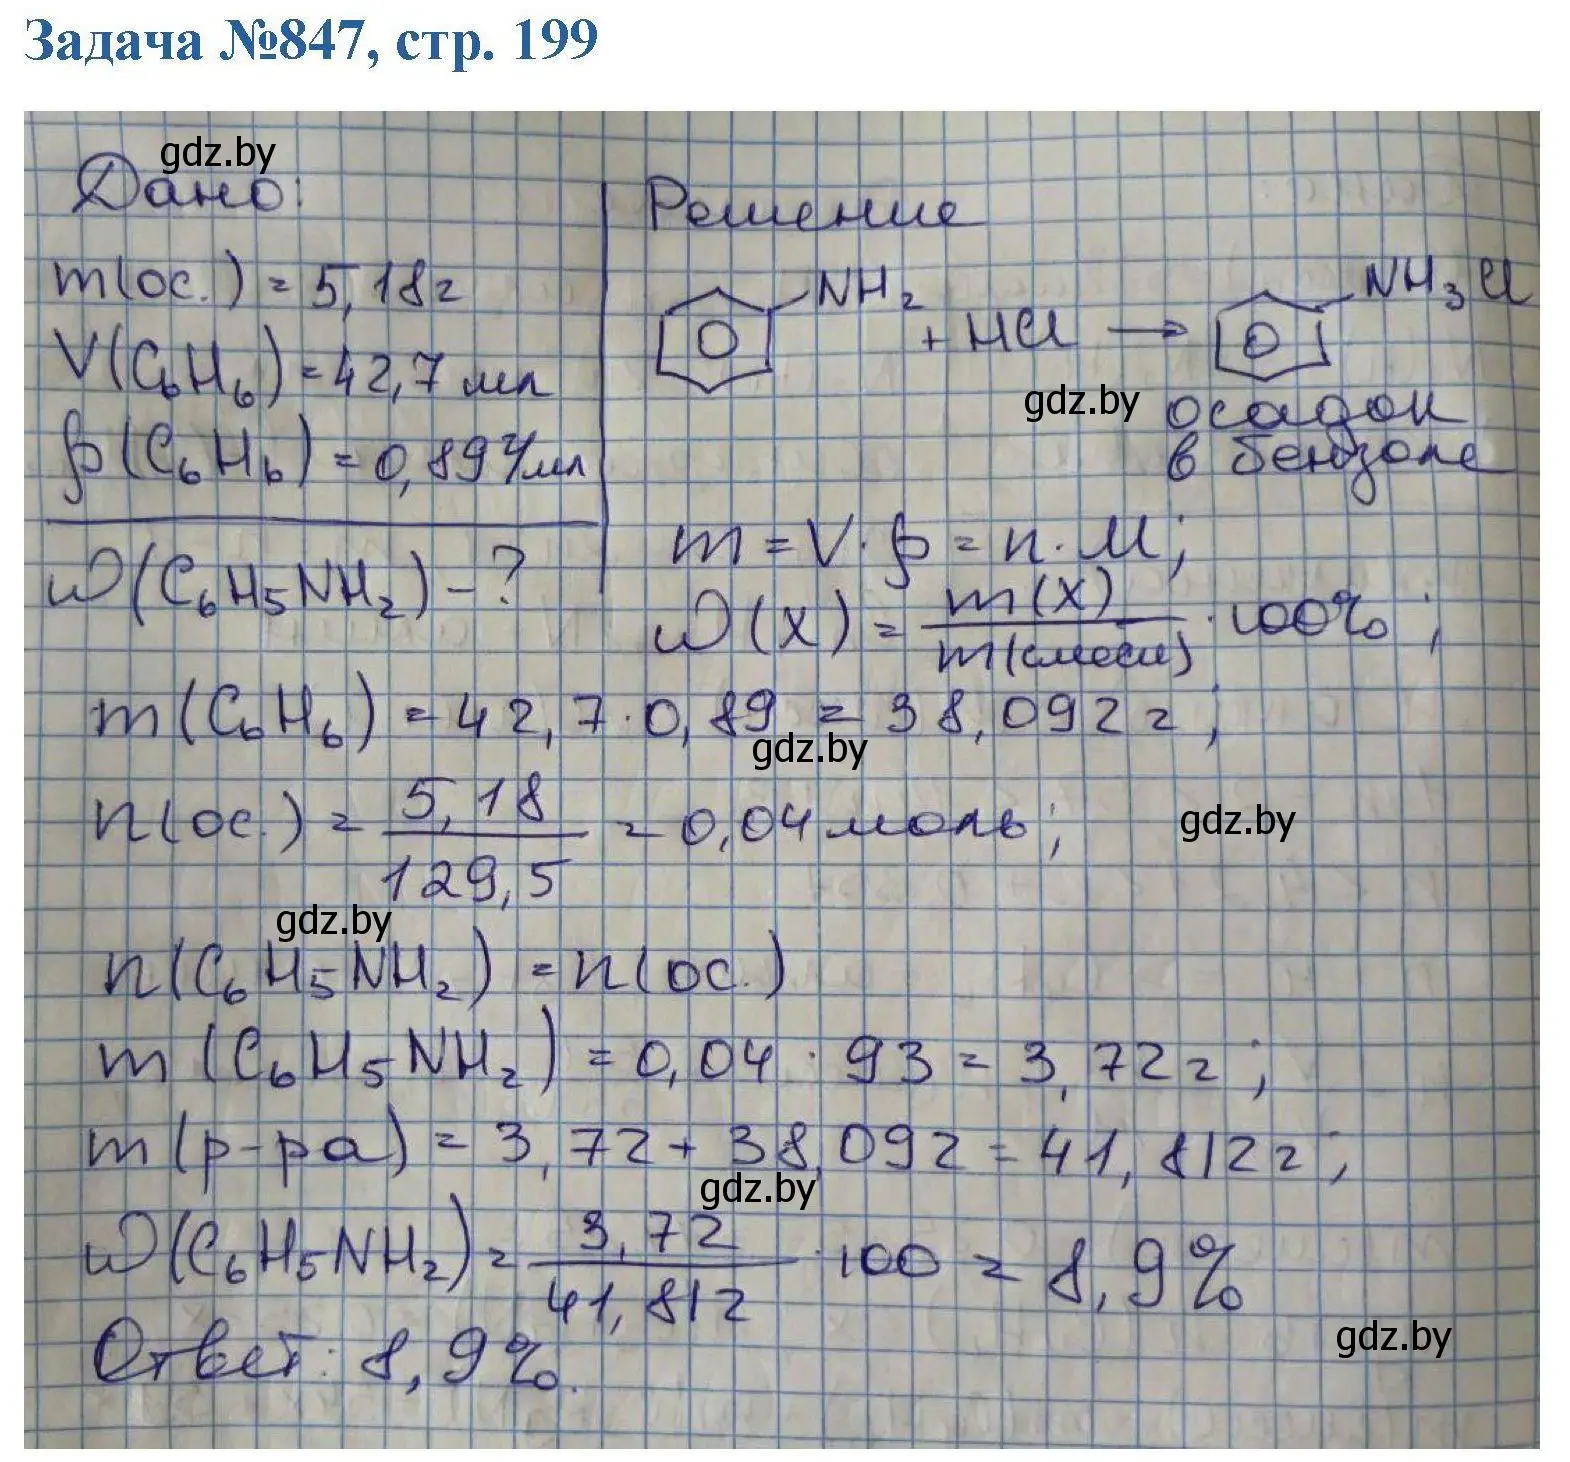 Задача №847, стр. 199
gdz.by
Дано:
m(ос.) = 5,18г
V(C₆H₆) = 42,7 мл
ρ(C₆H₆) = 0,89 г/мл
ω(C₆H₅NH₂) - ?
Решение
NH₂ + HCl → NH₃Cl
gdz.by
осадок
в бензоле
m = V · ρ = n · M;
ω(X) = m(X) / m(смеси) · 100%;
m(C₆H₆) = 42,7 · 0,89 = 38,092 г;
gdz.by
n(ос.) = 5,18 / 129,5 = 0,04 моль;
gdz.by
gdz.by
n(C₆H₅NH₂) = n(ос.)
m(C₆H₅NH₂) = 0,04 · 93 = 3,72 г;
m(р-ра) = 3,72 + 38,092 = 41,812 г;
gdz.by
ω(C₆H₅NH₂) = 3,72 / 41,812 · 100 = 8,9%
gdz.by
Ответ: 8,9%.